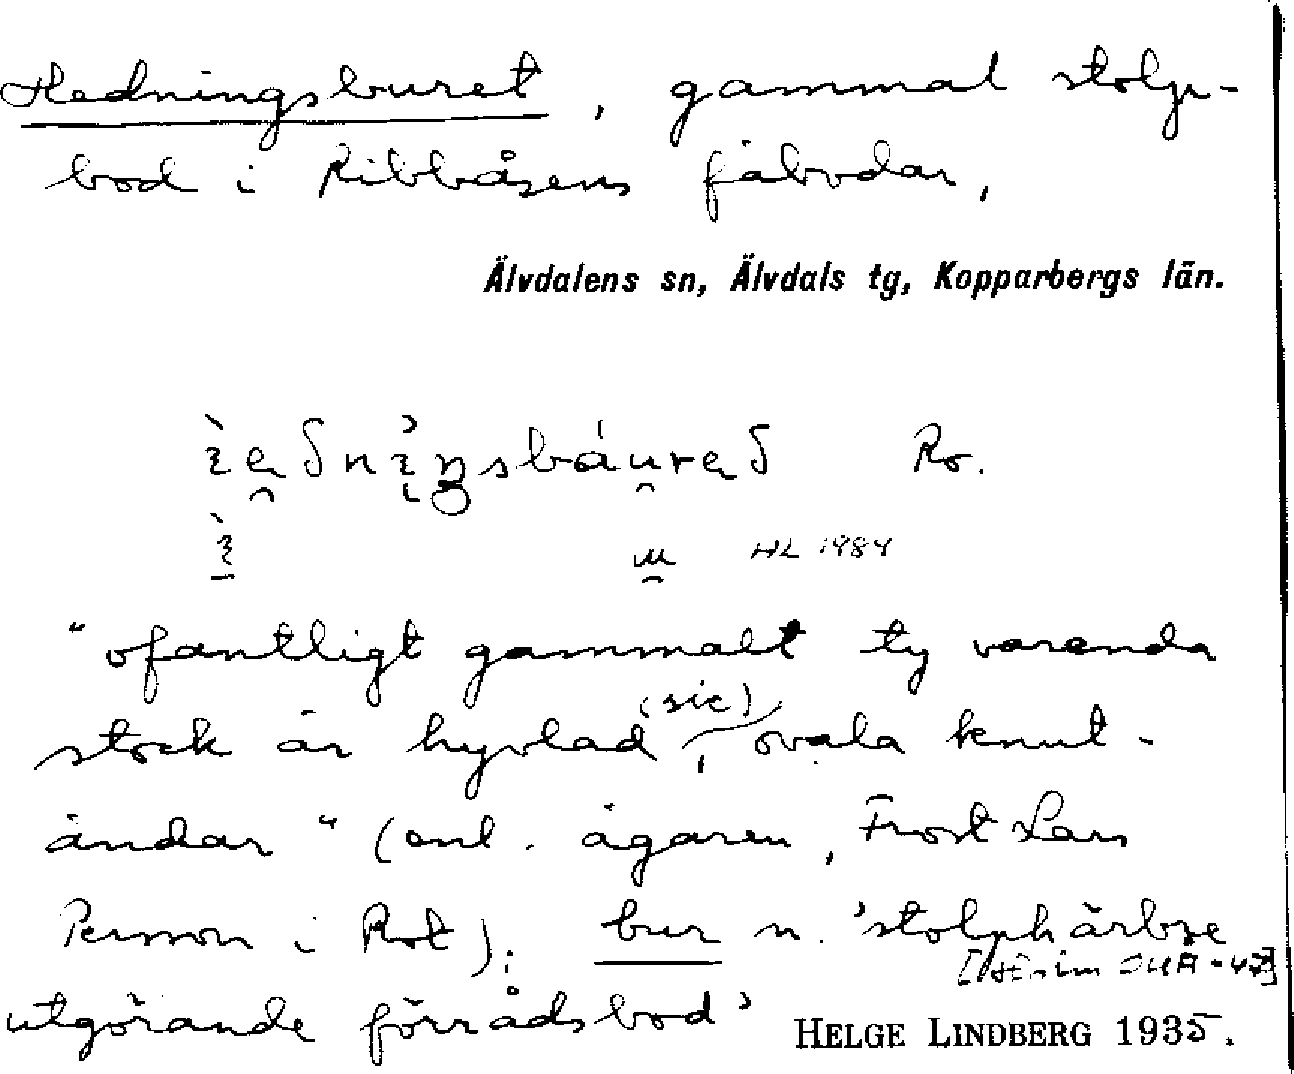 Hedningsburet, gammal stolp-
bod i Ribbåsens fäbodar,
Älvdalens sn, Älvdals tg, Kopparbergs län.
Ro.
HL 1984
"ofantligt gammalt ty varenda
stock är hyvlad (sic), ovala knut-
ändar" (enl. ägaren, Frost Lars
Persson i Rot). bur n. 'stolphärbre
utgörande förrådsbod'
HELGE LINDBERG 1935.